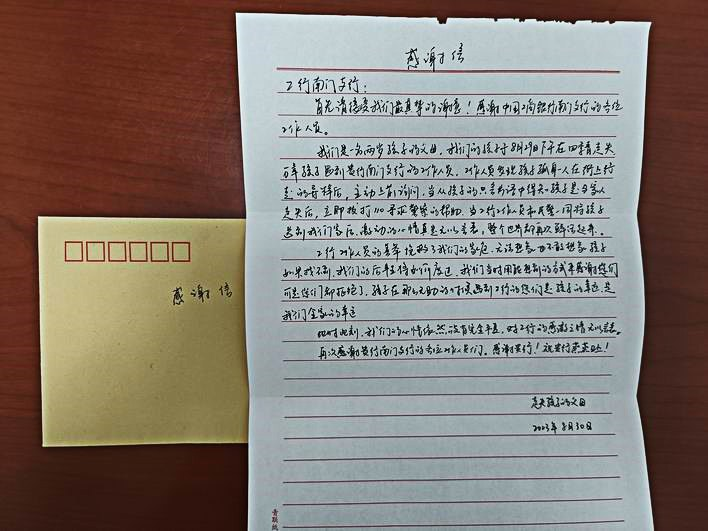 感谢信
工行南门支行：
首先请接受我们最真挚的谢意！感谢中国工商银行南门支行的各位
工作人员。
我们是一名两岁孩子的父母，我们的孩子于8月29日下午在四季青走失
万幸孩子遇到贵行南门支行的工作人员，工作人员发现孩子孤身一人在街上行
走的异样后，主动上前询问，当从孩子的只言片语中得知孩子是与家人
走失后，立即拨打110寻求警察的帮助。当工行工作人员和民警一同将孩子
送到我们家后，激动的心情真是无以言表，整个世界都再次鲜活起来。
工行工作人员的善举拯救了我们的家庭，无法想象也不敢想象孩子
如果找不到，我们的后半生将如何度过，我们当时用能想到的方式来感谢您们
可是您们都拒绝了，孩子在那么无助的时候遇到工行的您们是孩子的幸运，是
我们全家的幸运
此时此刻，我们的心情依然没有完全平复，对工行的感激之情无以言表。
再次感谢贵行南门支行的各位工作人员们。感谢贵行！祝贵行蒸蒸日上！
走失孩子的父母
2023年8月30日
感谢信